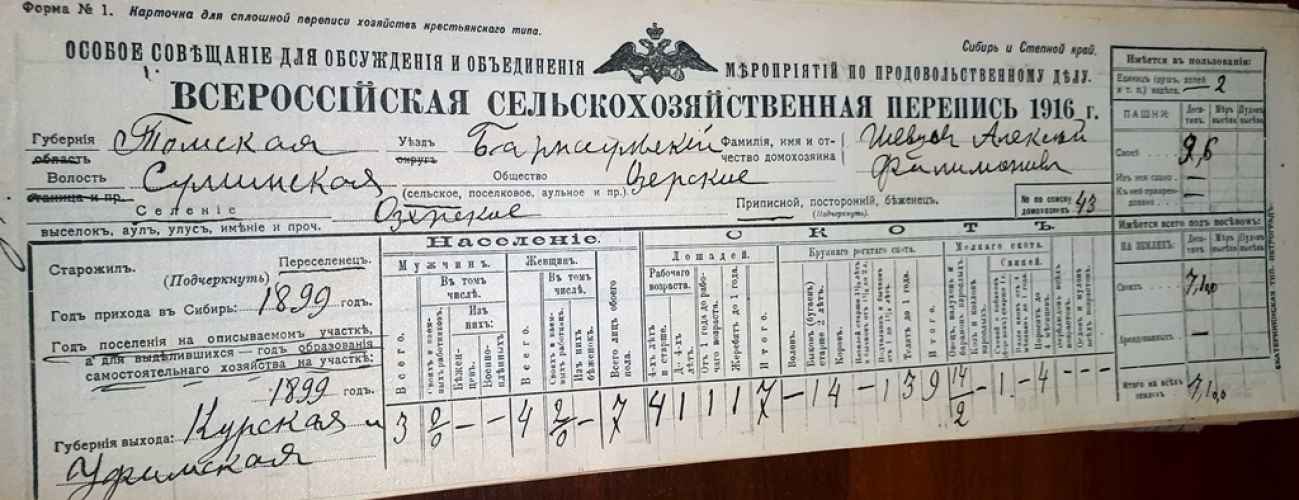 Форма № 1. Карточка для сплошной переписи хозяйствъ крестьянскаго типа.
Сибирь и Степной край.
ОСОБОЕ СОВѢЩАНІЕ ДЛЯ ОБСУЖДЕНІЯ И ОБЪЕДИНЕНІЯ МѢРОПРІЯТІЙ ПО ПРОДОВОЛЬСТВЕННОМУ ДѢЛУ.
ВСЕРОССІЙСКАЯ СЕЛЬСКОХОЗЯЙСТВЕННАЯ ПЕРЕПИСЬ 1916 г.
Губернія область Томская Уѣздъ округъ Барнаульскій Фамилія, имя и отчество домохозяина Шевцов Алексѣй Филимоновъ
Волость станица и пр. Сулинская Общество (сельское, поселковое, аульное и пр.) Озерское
Селеніе Озерское Приписной, посторонній, бѣженец. (Подчеркнуть). № по списку домохозяевъ 43
выселокъ, аулъ, улусъ, имѣніе и проч.
Старожилъ. Переселенец.
(Подчеркнуть)
Годъ прихода въ Сибирь: 1899 годъ.
Годъ поселенія на описываемомъ участкѣ,
а для выдѣлившихся — годъ образованія
самостоятельнаго хозяйства на участкѣ:
1899 годъ.
Губернія выхода: Курская и
Уфимская
Населеніе.
Мужчинъ. Женщинъ.
Всего. Въ томъ числѣ. Изъ нихъ: Бѣженцевъ. Военноплѣнныхъ
Всего. Въ томъ числѣ. Изъ нихъ бѣженокъ. Всего лицъ обоего пола.
3 2/0 - - 4 2/0 - 7
СКОТЪ.
Лошадей. Крупнаго рогатаго скота. Мелкаго скота.
Рабочаго возраста. 4-хъ лѣтъ и старше. До 4-хъ лѣтъ. Отъ 1 года до рабочаго возраста. Жеребятъ до 1 года. Итого.
4 1 1 1 7
Воловъ. Быковъ (бугаевъ) старше 2 лѣтъ. Коровъ. Телятъ до 1 года. Итого.
- 1 4 - 1 3 9
Свиней.
14/2 - 1 - 4 - - -
Имѣется въ пользованіи:
Единицъ (душ, долей и т. п.) надѣла. — 2
ПАШНЯ: Десятинъ.
Своей 9,6
Изъ нея сдано —
Къ ней прикрендовано —
Имѣется всего подъ посѣвомъ:
НА ЗЕМЛЯХЪ: Десятинъ.
Своихъ 7,10
Арендованныхъ —
Итого на всѣхъ земляхъ 7,10
ЕКАТЕРИНИНСКАЯ ТИП. ПЕТРОГРАДЪ.